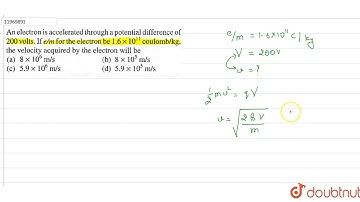 11969891
An electron is accelerated through a potential difference of
200 volts. If e/m for the electron be 1.6 × 10¹¹ coulomb/kg,
the velocity acquired by the electron will be
(a) 8 × 10⁶ m/s (b) 8 × 10⁵ m/s
(c) 5.9 × 10⁶ m/s (d) 5.9 × 10⁵ m/s
e/m = 1.6 × 10¹¹ C/kg
V = 200V
v = ?
1/2 mv² = qV
v = √(2qV/m)
doubtnut